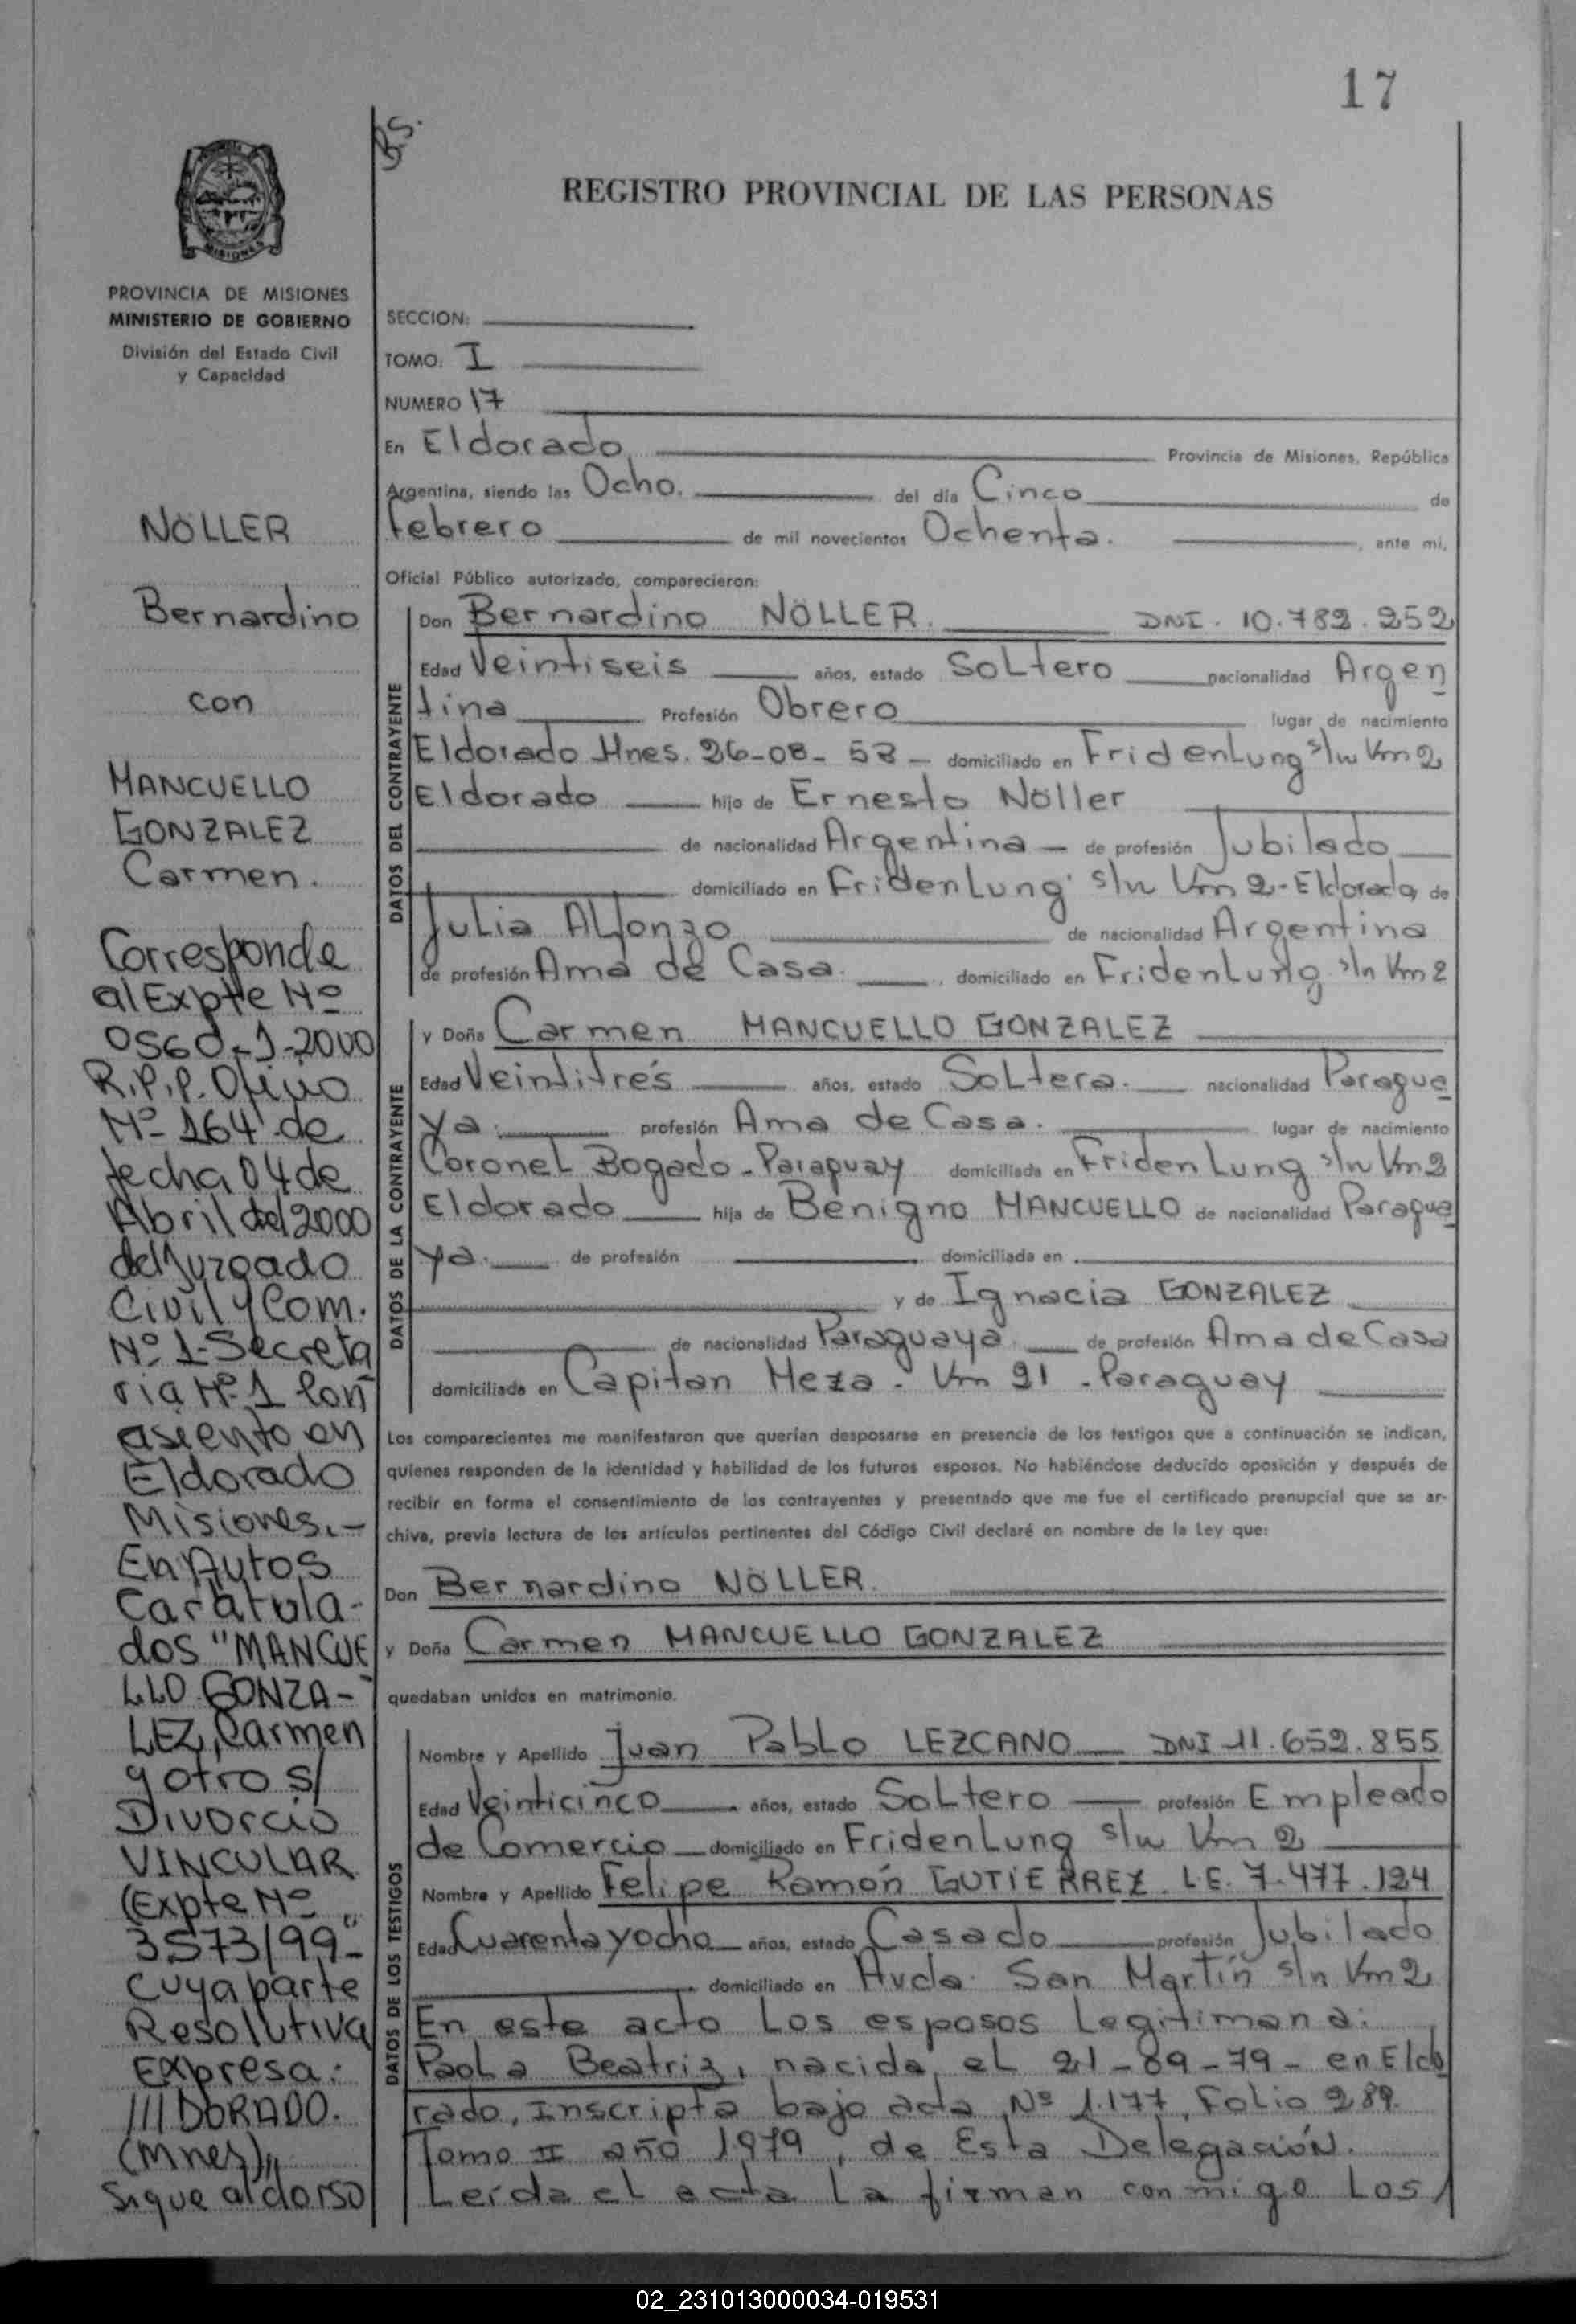 17
Bs.
REGISTRO PROVINCIAL DE LAS PERSONAS
MISIONES
PROVINCIA DE MISIONES
MINISTERIO DE GOBIERNO
División del Estado Civil
y Capacidad
NÖLLER
Bernardino
con
MANCUELLO
GONZALEZ
Carmen.
Corresponde
al Expte Nº
0560-1-2000
R.P.P. Oficio
Nº 164 de
fecha 04 de
Abril del 2000
del Juzgado
Civil y Com.
Nº 1-Secreta
ria Nº 1 Con
asiento en
Eldorado
Misiones.-
En Autos
Caratula-
dos "MANCUE
LLO GONZA-
LEZ, Carmen
y otro s/
Divorcio
VINCULAR
(Expte Nº
3573/99"-
Cuya parte
Resolutiva
Expresa:
///DORADO.
(Mnes),,
Sigue al dorso
SECCION:
TOMO: I
NUMERO 17
En Eldorado, Provincia de Misiones, República
Argentina, siendo las Ocho. del día Cinco de
febrero de mil novecientos Ochenta. , ante mi,
Oficial Público autorizado, comparecieron:
DATOS DEL CONTRAYENTE
Don Bernardino NÖLLER. DNI. 10.782.252
Edad Veintiseis años, estado Soltero nacionalidad Argen
tina Profesión Obrero lugar de nacimiento
Eldorado Mnes. 26-08-53 - domiciliado en FridenLung s/n Km 2
Eldorado hijo de Ernesto Nöller
de nacionalidad Argentina - de profesión Jubilado
domiciliado en FridenLung s/n Km 2-Eldorado, de
Julia Alfonzo de nacionalidad Argentina
de profesión Ama de Casa. , domiciliado en FridenLung s/n Km 2
DATOS DE LA CONTRAYENTE
y Doña Carmen MANCUELLO GONZALEZ
Edad Veintitrés años, estado Soltera. nacionalidad Paragua
ya. profesión Ama de Casa. lugar de nacimiento
Coronel Bogado-Paraguay domiciliada en FridenLung s/n Km 2
Eldorado hija de Benigno MANCUELLO de nacionalidad Paragua
ya. de profesión domiciliada en
y de Ignacia GONZALEZ
de nacionalidad Paraguaya. de profesión Ama de Casa
domiciliada en Capitan Meza - Km 21 - Paraguay
Los comparecientes me manifestaron que querían desposarse en presencia de los testigos que a continuación se indican,
quienes responden de la identidad y habilidad de los futuros esposos. No habiéndose deducido oposición y después de
recibir en forma el consentimiento de los contrayentes y presentado que me fue el certificado prenupcial que se ar-
chiva, previa lectura de los artículos pertinentes del Código Civil declaré en nombre de la Ley que:
Don Bernardino NÖLLER.
y Doña Carmen MANCUELLO GONZALEZ
quedaban unidos en matrimonio.
DATOS DE LOS TESTIGOS
Nombre y Apellido Juan Pablo LEZCANO DNI 11.652.855
Edad Veinticinco años, estado Soltero profesión Empleado
de Comercio domiciliado en FridenLung s/n Km 2
Nombre y Apellido Felipe Ramón GUTIERREZ. L.E. 7.477.124
Edad Cuarenta y ocho años, estado Casado profesión Jubilado
domiciliado en Avda. San Martín s/n Km 2
En este acto Los esposos Legitiman a:
Paola Beatriz, nacida el 21-09-79- en Eldo
rado, Inscripta bajo acta Nº 1.177, Folio 289.
Tomo II año 1979, de Esta Delegación.
Leída el acta la firman conmigo Los/
02_231013000034-019531